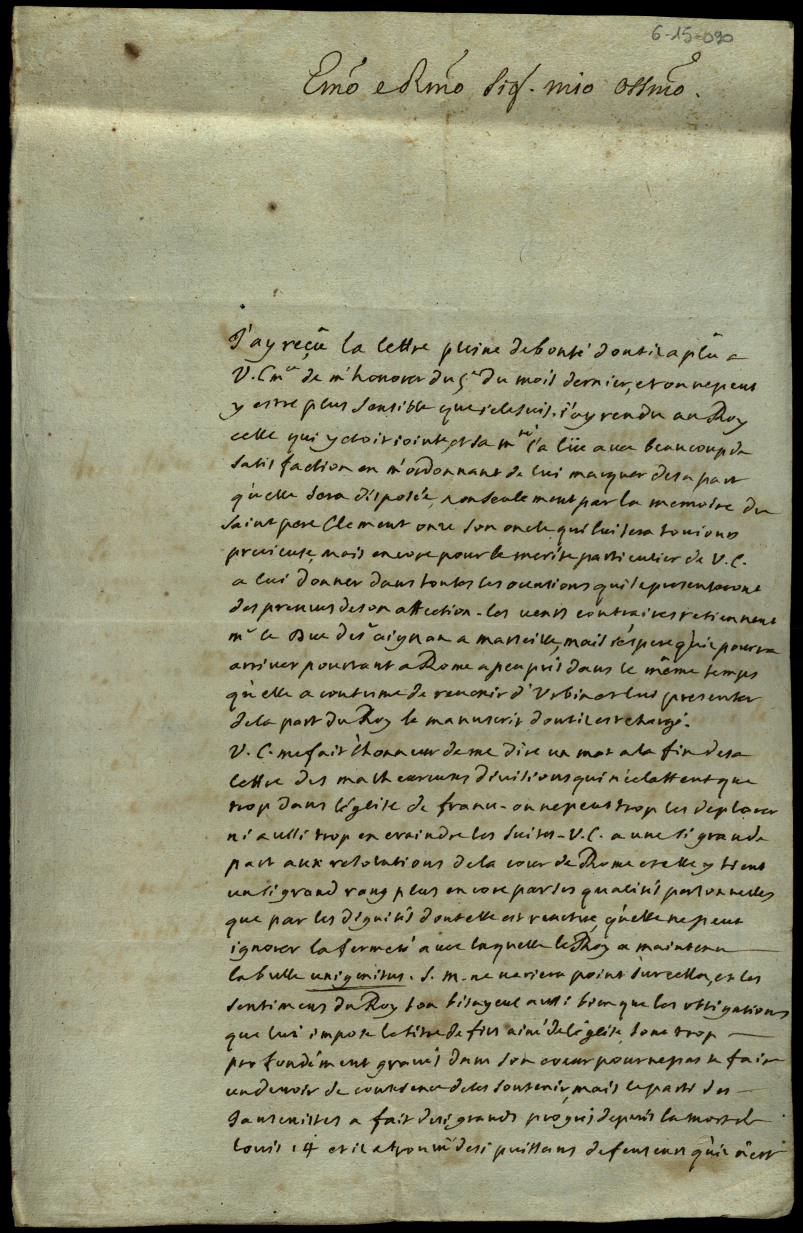 6-15-030
Emo e Rmo Sigr. mio ossmo.
J'ay reçeu la lettre pleine de bonté dont il a plû a
V. Em.ce de m'honorer du 5e du mois dernier, et on ne peut
y estre plus sensible que je le suis. j'ay rendu au Roy
celle qui y etoit jointe, et sa mte l'a lüe avec beaucoup de
satisfaction en m'ordonnant de lui marquer de sa part
qu'elle sera disposée, non seulement par la memoire du
saint pere Clement onze son oncle qui lui sera toujours
precieuse, mais encore pour le merite particulier de V. E.
a lui donner dans toutes les occasions qui se presenteront
des preuves de son affection - les vents contraires retiennent
mr le Duc de St aignan a marseille, mais j'espere qu'il pourra
arriver pourtant a Rome a peu prés dans le même temps
qu'elle a coutume de revenir d'Urbin et lui presenter
de la part du Roy le manuscrit dont il est chargé.
V. E. me fait l'honneur de me dire un mot a la fin de sa
lettre des malheureuses divisions qui n'eclattent que
trop dans l'église de france - on ne peut trop les deplorer
ni aussi trop en craindre les suites - V. E. a une si grande
part aux resolutions de la cour de Rome et elle y tient
un si grand rang plus encore par ses qualités personnelles
que par les dignités dont elle est revetue, qu'elle ne peut
ignorer la fermeté avec laquelle le Roy a maintenu
la bulle unigenitus. S. M. ne variera point sur cella, et les
sentimens du Roy son bisayeul aussi bien que les obligations
que lui impose le titre de fils ainé de l'église, sont trop
profondément gravés dans son coeur pour ne pas se faire
un devoir de conscience de les soutenir, mais le parti des
Jansenistes a fait de si grands progrés depuis la mort de
Louis 14 et il a trouvé de si puissans defenseurs qu'il n'est